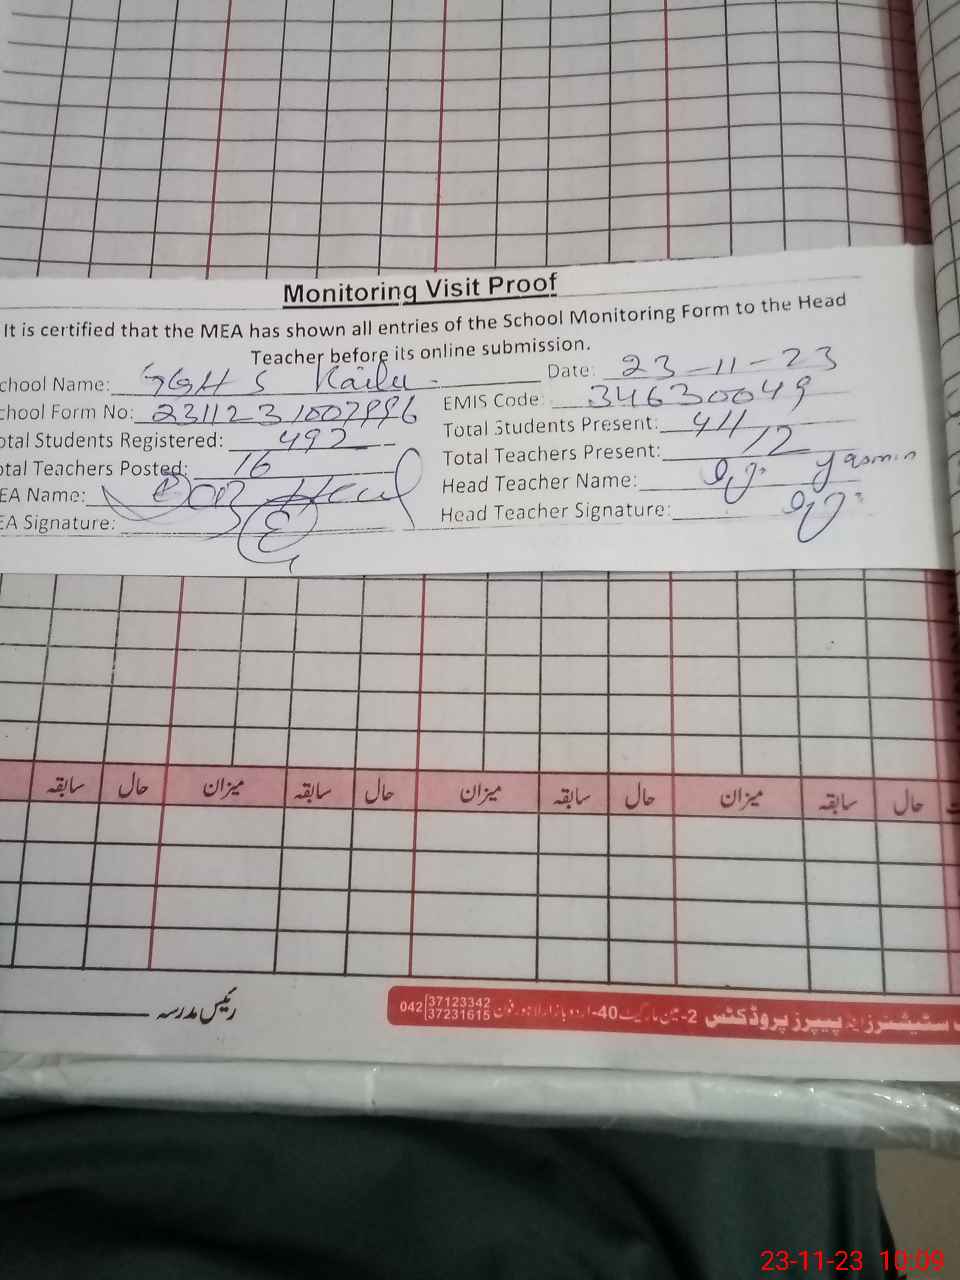 Monitoring Visit Proof
It is certified that the MEA has shown all entries of the School Monitoring Form to the Head
Teacher before its online submission.
chool Name: GGHS Date: 23-11-23
chool Form No: EMIS Code: 34630049
otal Students Registered: 492 Total Students Present: 411
otal Teachers Posted: 16 Total Teachers Present: 12
EA Name: Head Teacher Name: Yasmin
EA Signature: Head Teacher Signature:
سابقہ حال میزان سابقہ حال میزان سابقہ حال میزان سابقہ حال
رئیس مدرسہ
سٹیشنرز اینڈ پیپرز پروڈکٹس 2-مین مارکیٹ 40-اردو بازار لاہور فون 042 37123342
37231615
23-11-23 10:09